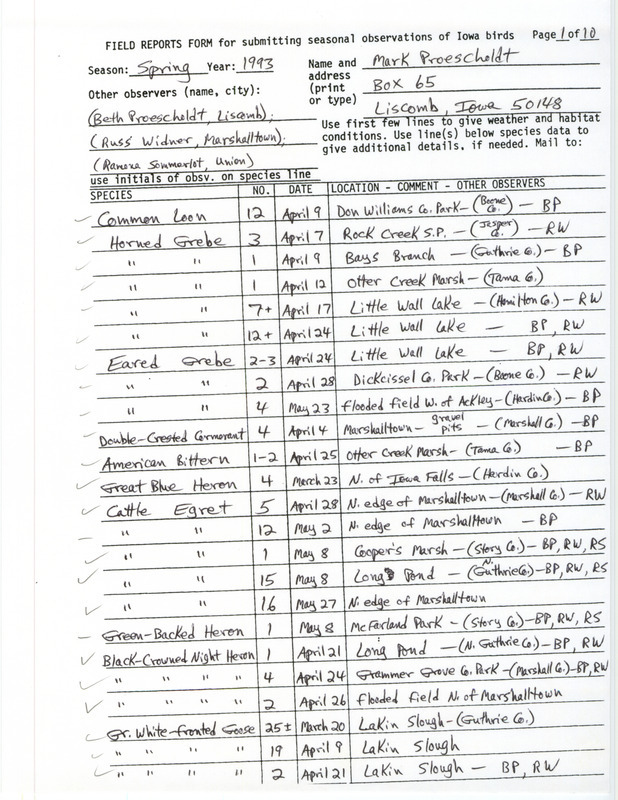 FIELD REPORTS FORM for submitting seasonal observations of Iowa birds Page 1 of 10
Season: Spring Year: 1993
Name and address (print or type) Mark Proescholdt
BOX 65
Liscomb, Iowa 50148
Other observers (name, city):
(Beth Proescholdt, Liscomb);
(Russ Widner, Marshalltown);
(Ramona Sommerlot, Union)
use initials of obsv. on species line
Use first few lines to give weather and habitat
conditions. Use line(s) below species data to
give additional details, if needed. Mail to:
SPECIES NO. DATE LOCATION - COMMENT - OTHER OBSERVERS
Common Loon 12 April 9 Don Williams Co. Park - (Boone Co.) - BP
Horned Grebe 3 April 7 Rock Creek S.P. - (Jasper Co.) - RW
" " 1 April 9 Bays Branch - (Guthrie Co.) - BP
" " 1 April 12 Otter Creek Marsh - (Tama Co.)
" " 7+ April 17 Little Wall Lake - (Hamilton Co.) - RW
" " 12+ April 24 Little Wall Lake - BP, RW
Eared Grebe 2-3 April 24 Little Wall Lake - BP, RW
" " 2 April 28 Dickcissel Co. Park - (Boone Co.) - RW
" " 4 May 23 flooded field W. of Ackley - (Hardin Co.) - BP
Double-Crested Cormorant 4 April 4 Marshalltown - gravel pits - (Marshall Co.) - BP
American Bittern 1-2 April 25 Otter Creek Marsh - (Tama Co.) - BP
Great Blue Heron 4 March 23 N. of Iowa Falls - (Hardin Co.)
Cattle Egret 5 April 28 N. edge of Marshalltown - (Marshall Co.) - RW
" " 12 May 2 N. edge of Marshalltown - BP
" " 1 May 8 Cooper's Marsh - (Story Co.) - BP, RW, RS
" " 15 May 8 Long Pond - (N. Guthrie Co.) - BP, RW, RS
" " 16 May 27 N. edge of Marshalltown
Green-Backed Heron 1 May 8 McFarland Park - (Story Co.) - BP, RW, RS
Black-Crowned Night Heron 1 April 21 Long Pond - (N. Guthrie Co.) - BP, RW
" " " " 4 April 24 Grammer Grove Co. Park - (Marshall Co.) - BP, RW
" " " " 2 April 26 flooded field N. of Marshalltown
Gr. White-fronted Goose 25± March 20 Lakin Slough - (Guthrie Co.)
" " " " 19 April 9 Lakin Slough
" " " " 2 April 21 Lakin Slough - BP, RW